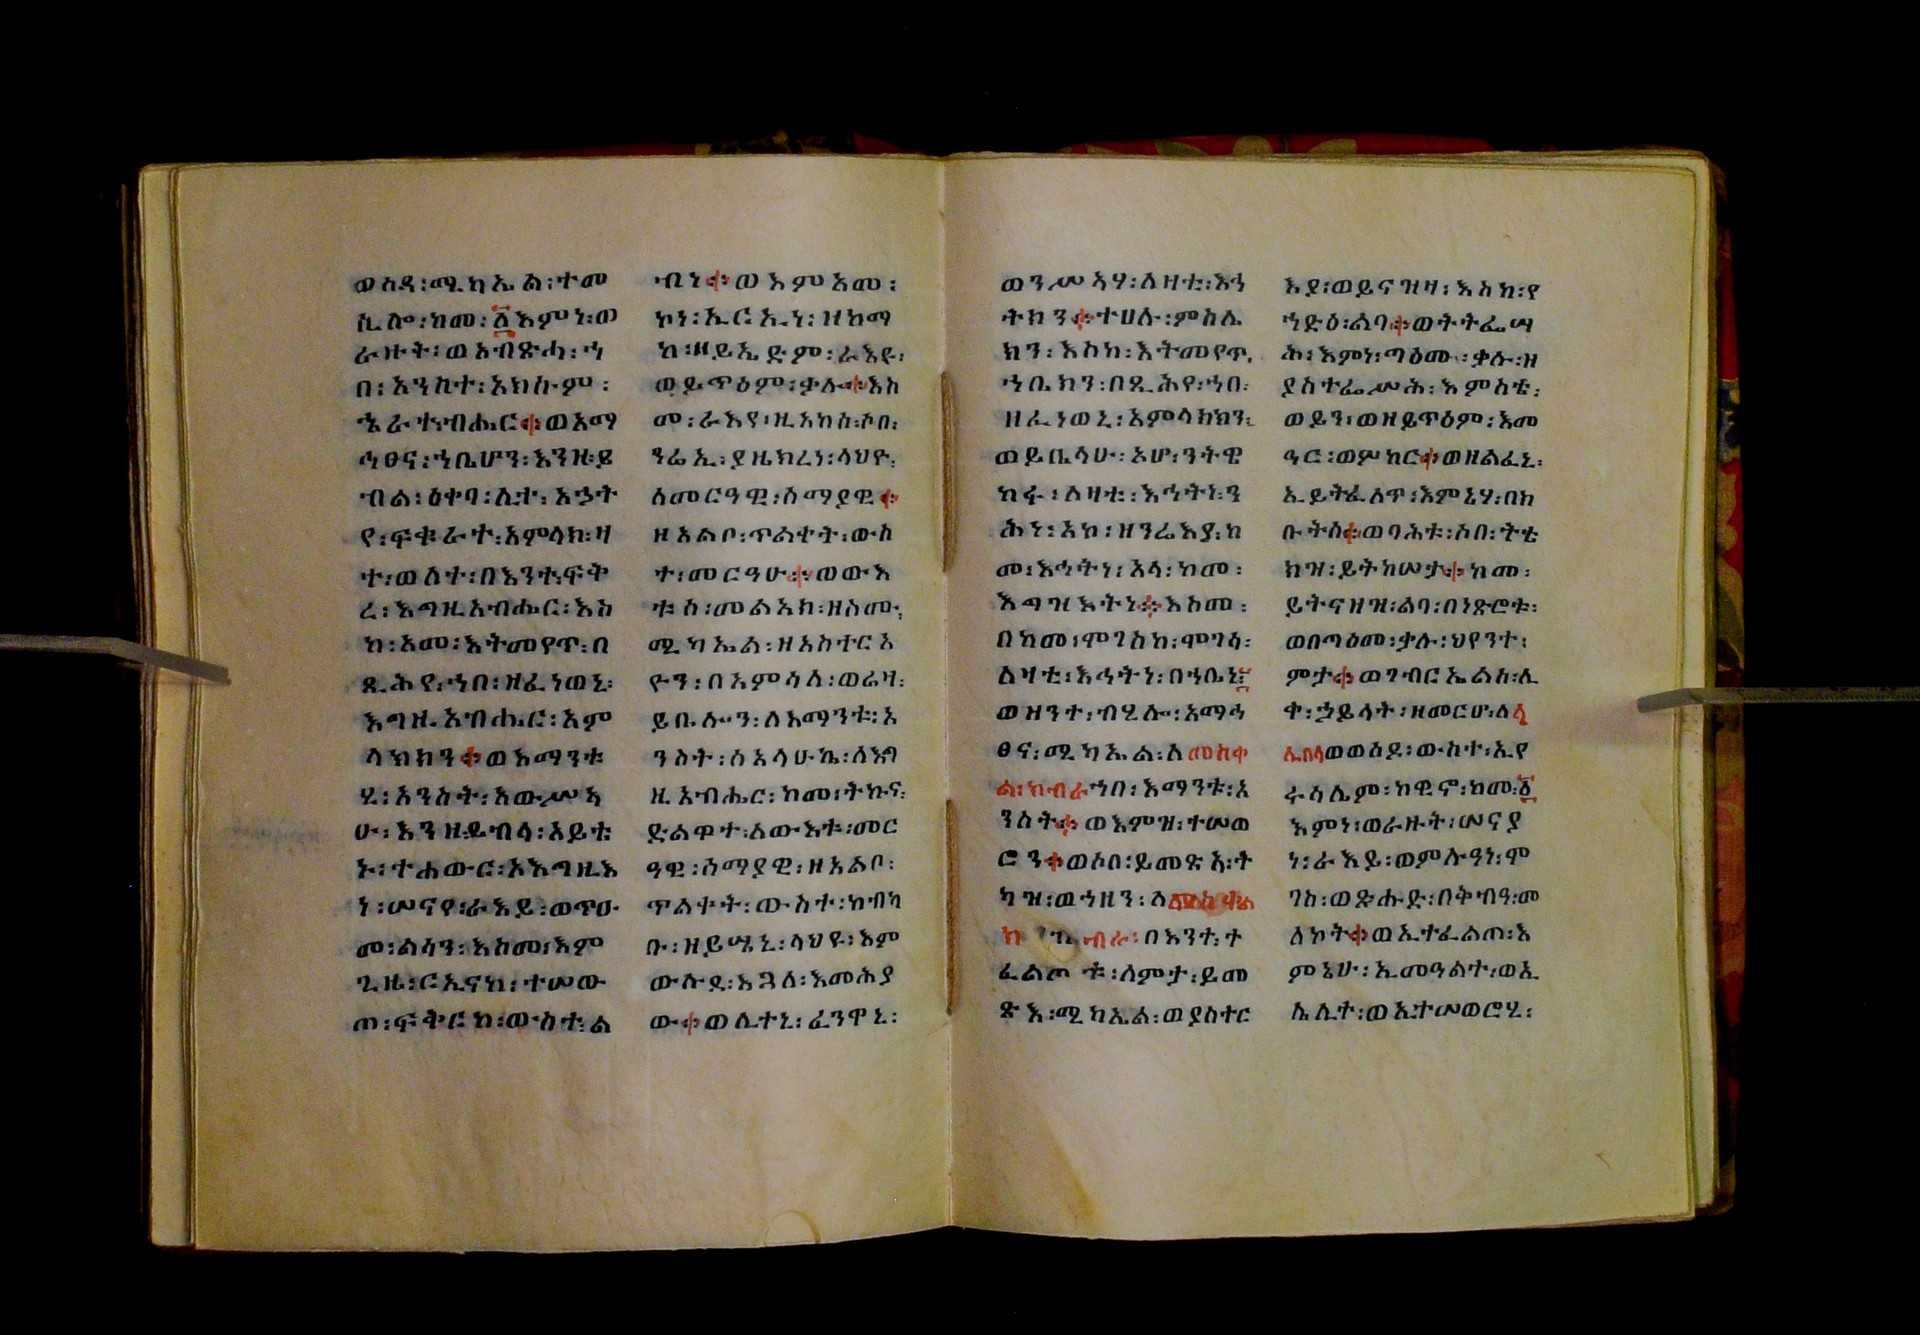 ወሰዳ፡ሚካኤል፡ተመ
ሲሎ፡ከመ፡፩እምነ፡ወ
ራዙት፡ወአብጽሐ፡ኀ
በ፡አንስተ፡አክሱም፡
ኄራተ፡ብሔር፨ወአማ
ኅፀና፡ኀቤሆን፡እንዘ፡ይ
ብል፡ዕቀባ፡ሊተ፡እኅት
የ፡ፍቁራተ፡አምላክ፡ዛ
ተ፡ወለተ፡በእንተ፡ፍቅ
ረ፡እግዚአብሔር፡እስ
ከ፡አመ፡እትመየጥ፡በ
ጺሕየ፡ኀበ፡ዘፈነወኒ፡
እግዚአብሔር፡አም
ላክክን፨ወእማንቱ
ሂ፡አንስት፡አውሥኣ
ሁ፡እንዘ፡ይብላ፡አይቴ
ኑ፡ተሐውር፡አእግዚእ
ነ፡ሠናየ፡ራእይ፡ወጥዑ
መ፡ልሳን፡እስመ፡እም
ጊዜ፡ርኢናከ፡ተሠው
ጠ፡ፍቅርከ፡ውስተ፡ል
ብነ፨ወእምአመ፡
ኮነ፡ኢርኢነ፡ዘከማ
ከ፡ዘይኤድም፡ራእዩ፡
ወይጥዕም፡ቃሉ፨እስ
መ፡ራእየ፡ዚአከሰ፡ሶበ፡
ንሬኢ፡ያዜክረነ፡ላህዮ፡
ለመርዓዊ፡ሰማያዊ፨
ዘአልቦ፡ጥልቀት፡ውስ
ተ፡መርዓሁ፨ወውእ
ቱሰ፡መልአክ፡ዘስሙ፡
ሚካኤል፡ዘአስተርአ
ዮን፡በአምሳለ፡ወሬዛ፡
ይቤሎን፡ለእማንቱ፡አ
ንስት፡ስአላሁኬ፡ለእግ
ዚአብሔር፡ከመ፡ትኩና፡
ድልዋተ፡ለውእቱ፡መር
ዓዊ፡ሰማያዊ፡ዘአልቦ፡
ጥልቀት፡ውስተ፡ከብካ
ቡ፡ዘይሤኒ፡ላህዩ፡እም
ውሉደ፡እጓለ፡እመሕያ
ው፨ወሊተኒ፡ፈንዋኒ፡
ወንሥኣሃ፡ለዛቲ፡እኅ
ትክን፨ተሀሉ፡ምስሌ
ክን፡እስከ፡እትመየጥ፡
ኀቤክን፡በጺሕየ፡ኀበ፡
ዘፈነወኒ፡አምላክክን፡
ወይቤላሁ፡ኦሆ፡ንትዌ
ከፋ፡ለዛቲ፡እኅትነ፡ን
ሕነ፡አኮ፡ዘንሬእያ፡ከ
መ፡እኅትነ፡አላ፡ከመ፡
እግዝእትነ፨እስመ፡
በከመ፡ሞገስከ፡ሞገሳ፡
ለዛቲ፡እኅትነ፡በኀቤነ፡
ወዘንተ፡ብሂሎ፡አማኅ
ፀና፡ሚካኤል፡ለመስቀ
ል፡ክብራኀበ፡እማንቱ፡አ
ንስት፨ወእምዝ፡ተሠወ
ሮን፨ወሶበ፡ይመጽእ፡ት
ካዝ፡ወኀዘን፡ለመስቀል
ክብራ፡በእንተ፡ተ
ፈልጦቱ፡ለምታ፡ይመ
ጽእ፡ሚካኤል፡ወያስተር
እያ፡ወይናዝዛ፡እስከ፡የ
ኀድዕ፡ልባ፨ወትትፌሣ
ሕ፡እምነ፡ጣዕመ፡ቃሉ፡ዘ
ያስተፌሥሕ፡እምስቴ፡
ወይን፡ወዘይጥዕም፡እመ
ዓር፡ወምከር፨ወዘልፈኒ፡
ኢይትፈለጥ፡እምኔሃ፡በክ
ቡትሰ፨ወባሕቱ፡ሶበ፡ትቴ
ክዝ፡ይትከሠታ፨ከመ፡
ይትናዘዝ፡ልባ፡በነጽሮቱ፡
ወበጣዕመ፡ቃሉ፡ህየንተ፡
ምታ፨ወገብር ኤልሰ፡ሊ
ቀ፡ኃይላት፡ዘመርሆ፡ለላ
ሊበላወወሰዶ፡ውስተ፡ኢየ
ሩሳሌም፡ከዊኖ፡ከመ፡፩
እምነ፡ወራዙት፡ሠናያ
ነ፡ራእይ፡ወምሉዓነ፡ሞ
ገስ፡ወጽሑድ፡በቅብዓ፡መ
ለኮት፨ወኢተፈልጠ፡እ
ምኔሁ፡ኢመዓልተ፡ወኢ
ሌሊት፡ወኢተሠወሮሂ፡